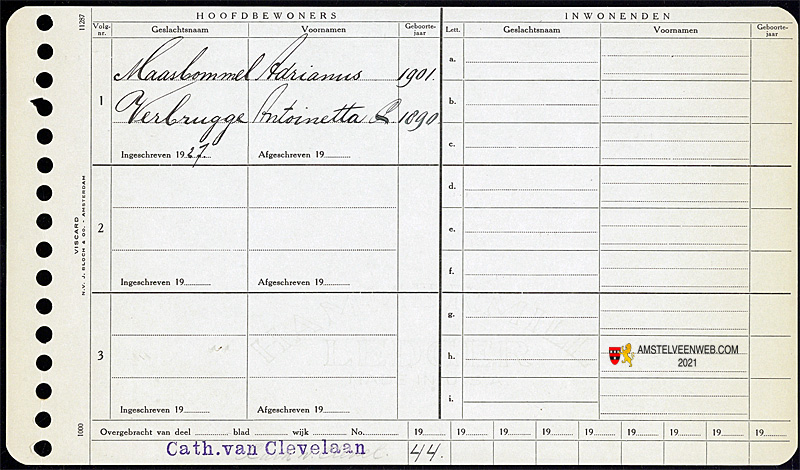 HOOFDBEWONERS
Volg-
nr. Geslachtsnaam Voornamen Geboorte-
jaar
1 Maasbommel Adrianus 1901.
Verbrugge Antoinetta 1890
Ingeschreven 1927. Afgeschreven 19
2
Ingeschreven 19 Afgeschreven 19
3
Ingeschreven 19 Afgeschreven 19
INWONENDEN
Lett. Geslachtsnaam Voornamen Geboorte-
jaar
a.
b.
c.
d.
e.
f.
g.
h.
i.
AMSTELVEENWEB.COM
2021
Overgebracht van deel blad wijk No. 19 19 19 19 19 19 19 19 19
Cath.van Clevelaan 44.
11287
VISCARD
N.V. J. BLOCH & CO. - AMSTERDAM
1000